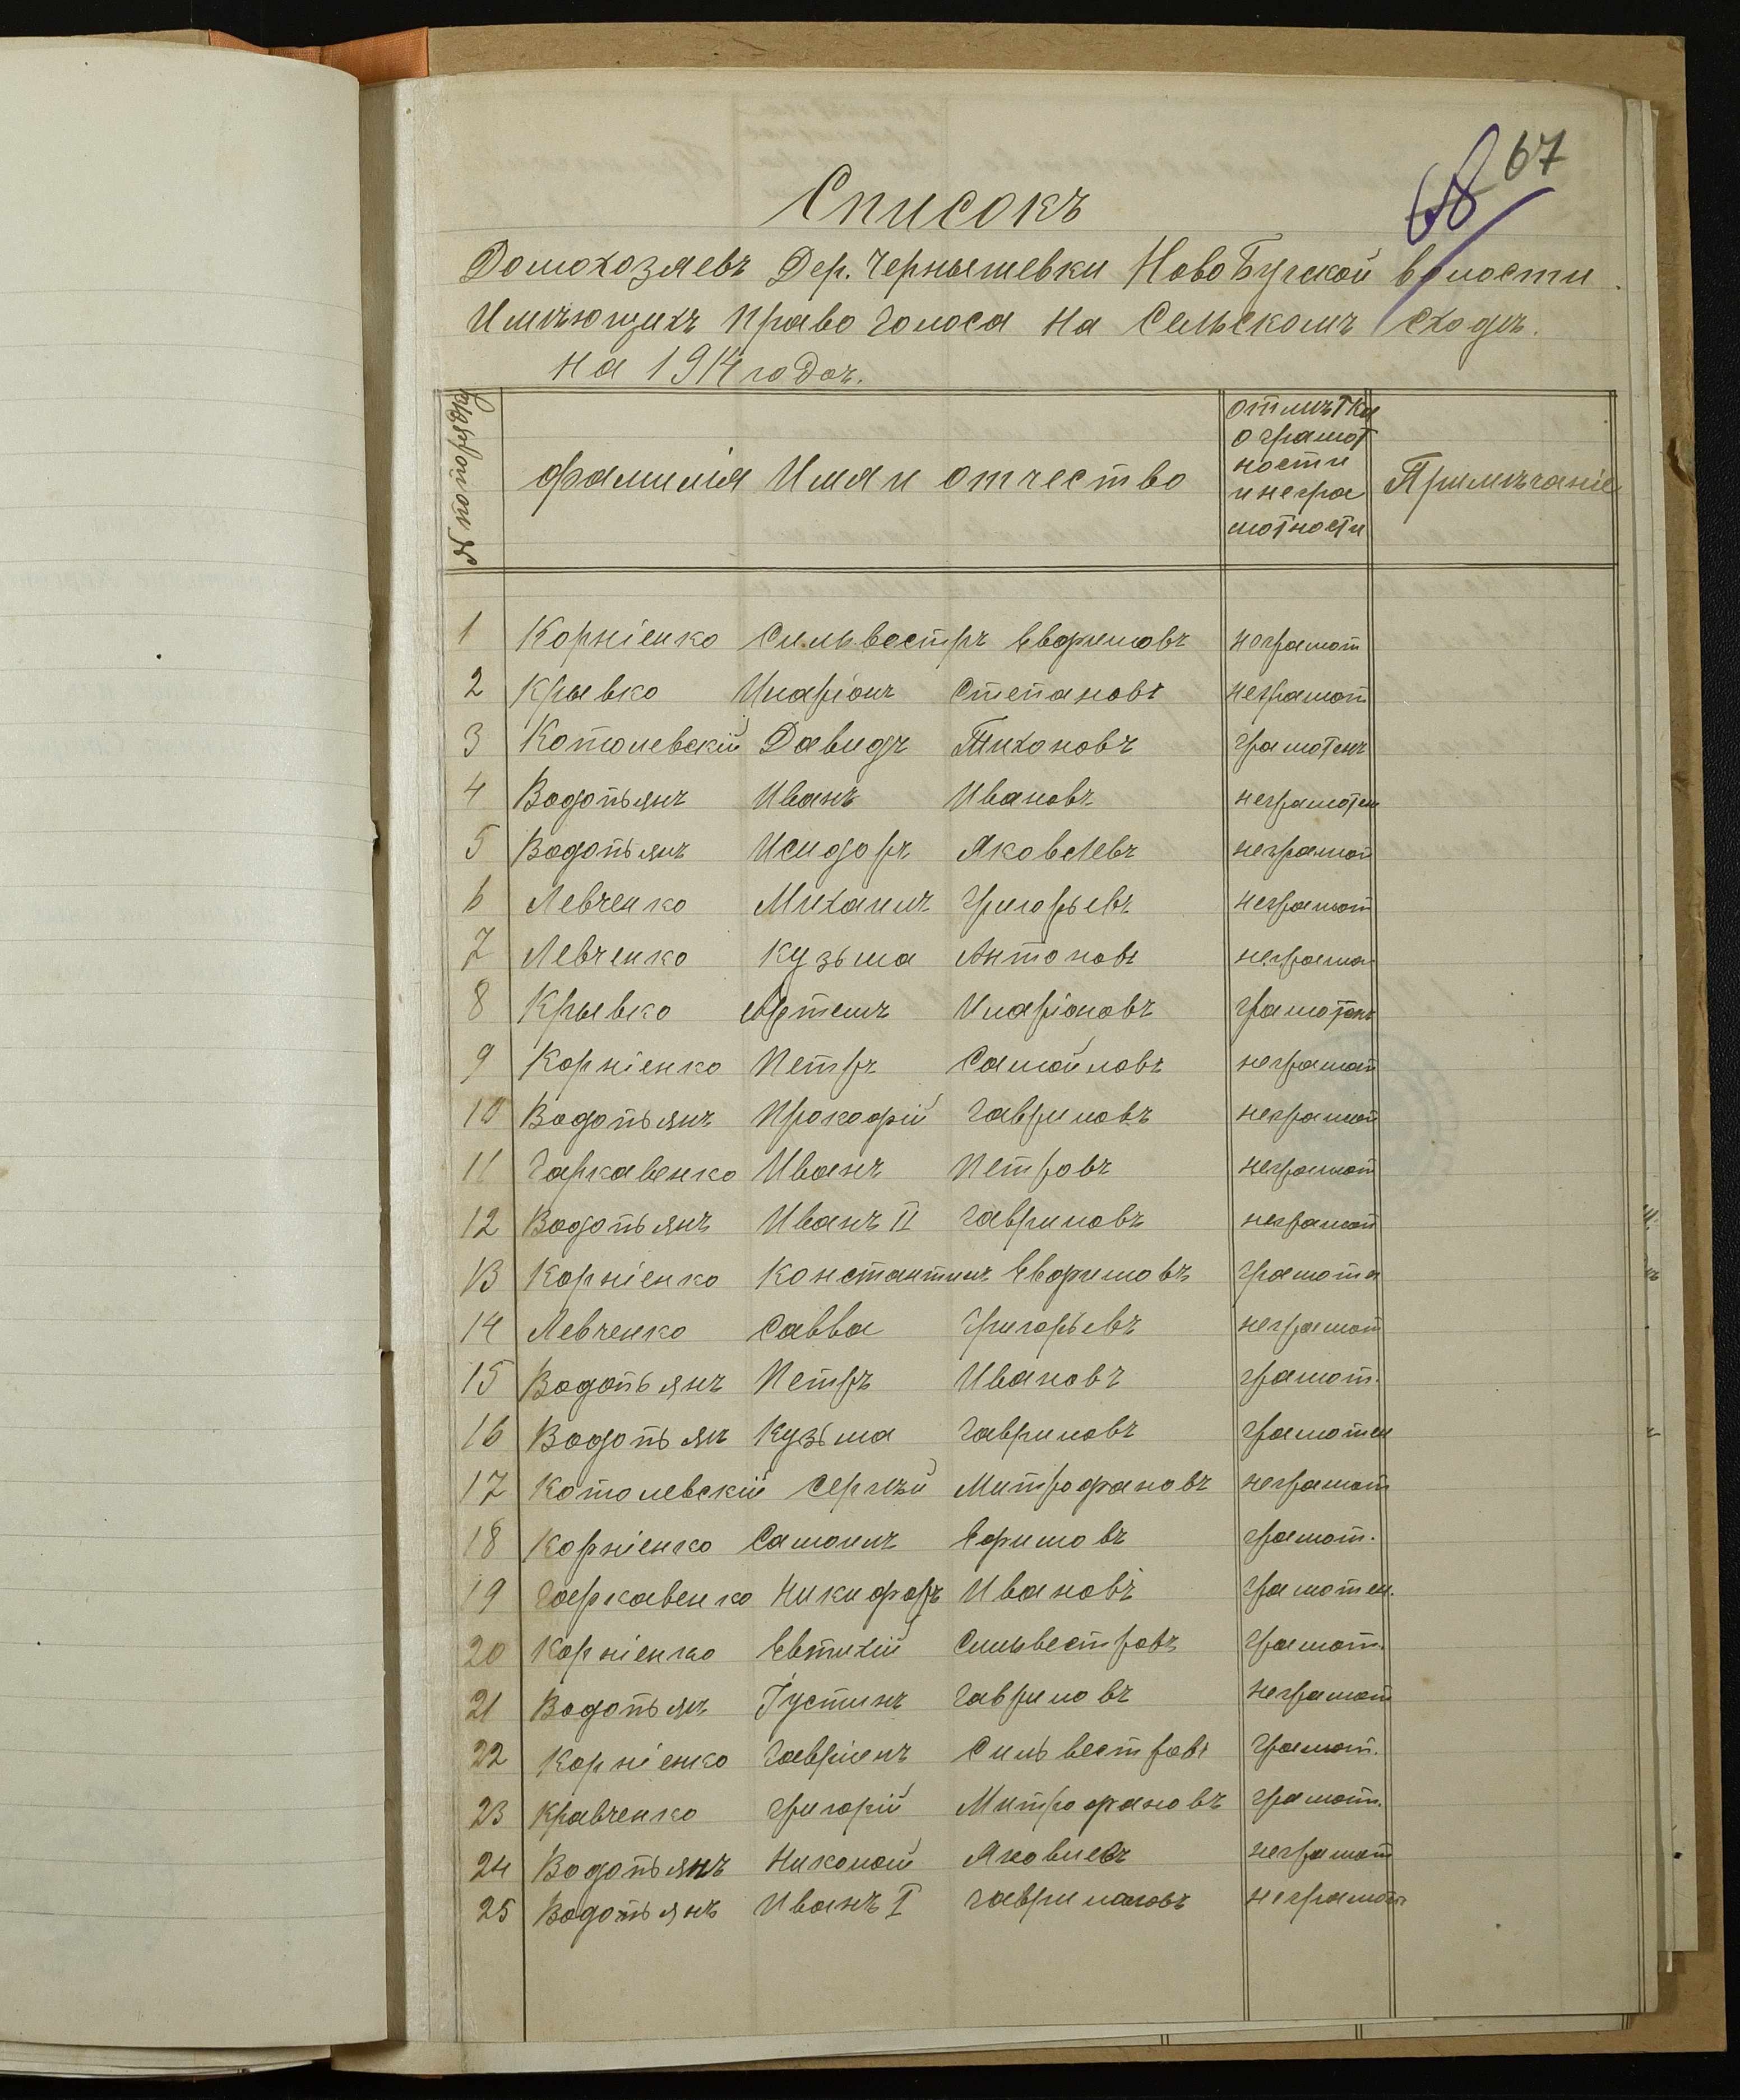 67
68
Списокъ
Домохозяевъ Дер. Чернышевки НовоБугской волости
Имѣющихъ Право Голоса на Сельскомъ Сходѣ.
на 1914 годъ.
№ по порядку
фамилія Имя и отчество
отмѣтки
о грамот
ности
и негра
мотности
Примѣчаніе
1 Корніенко Сильвестръ Евфимовъ неграмот
2 Крывко Иларіонъ Степановъ неграмот
3 Котолевскій Давидъ Тихоновъ грамотенъ
4 Водопьянъ Иванъ Ивановъ неграмотен
5 Водопьянъ Исидоръ Яковлевъ неграмот
6 Левченко Михаилъ Григорьевъ неграмот
7 Левченко Кузьма Антоновъ неграмо
8 Крывко Артемъ Иларіоновъ грамотенъ
9 Корніенко Петръ Самойловъ неграмот
10 Водопьянъ Прокофій Гавриловъ неграмот
11 Гаркавенко Иванъ Петровъ неграмот
12 Водопьянъ Иванъ II Гавриловъ неграмот
13 Корніенко Константинъ Евфимовъ грамотн
14 Левченко Савва Григорьевъ неграмот
15 Водопьянъ Петръ Ивановъ грамот.
16 Водопьян Кузьма Гавриловъ грамотен
17 Котолевскій Сергѣй Митрофановъ неграмот
18 Корніенко Самоилъ Ефимовъ грамот.
19 Гаркавенко Никифоръ Ивановъ грамотен.
20 Корніенко Евтихій Сильвестровъ грамот.
21 Водопьян Густинъ Гавриловъ неграмот
22 Корніенко Гавріилъ Сильвестровъ грамот.
23 Кравченко Григорій Митрофановъ грамот.
24 Водопьянъ Николай Яковлевъ неграмот
25 Водопьянъ Иванъ I Гавриловъ неграмот